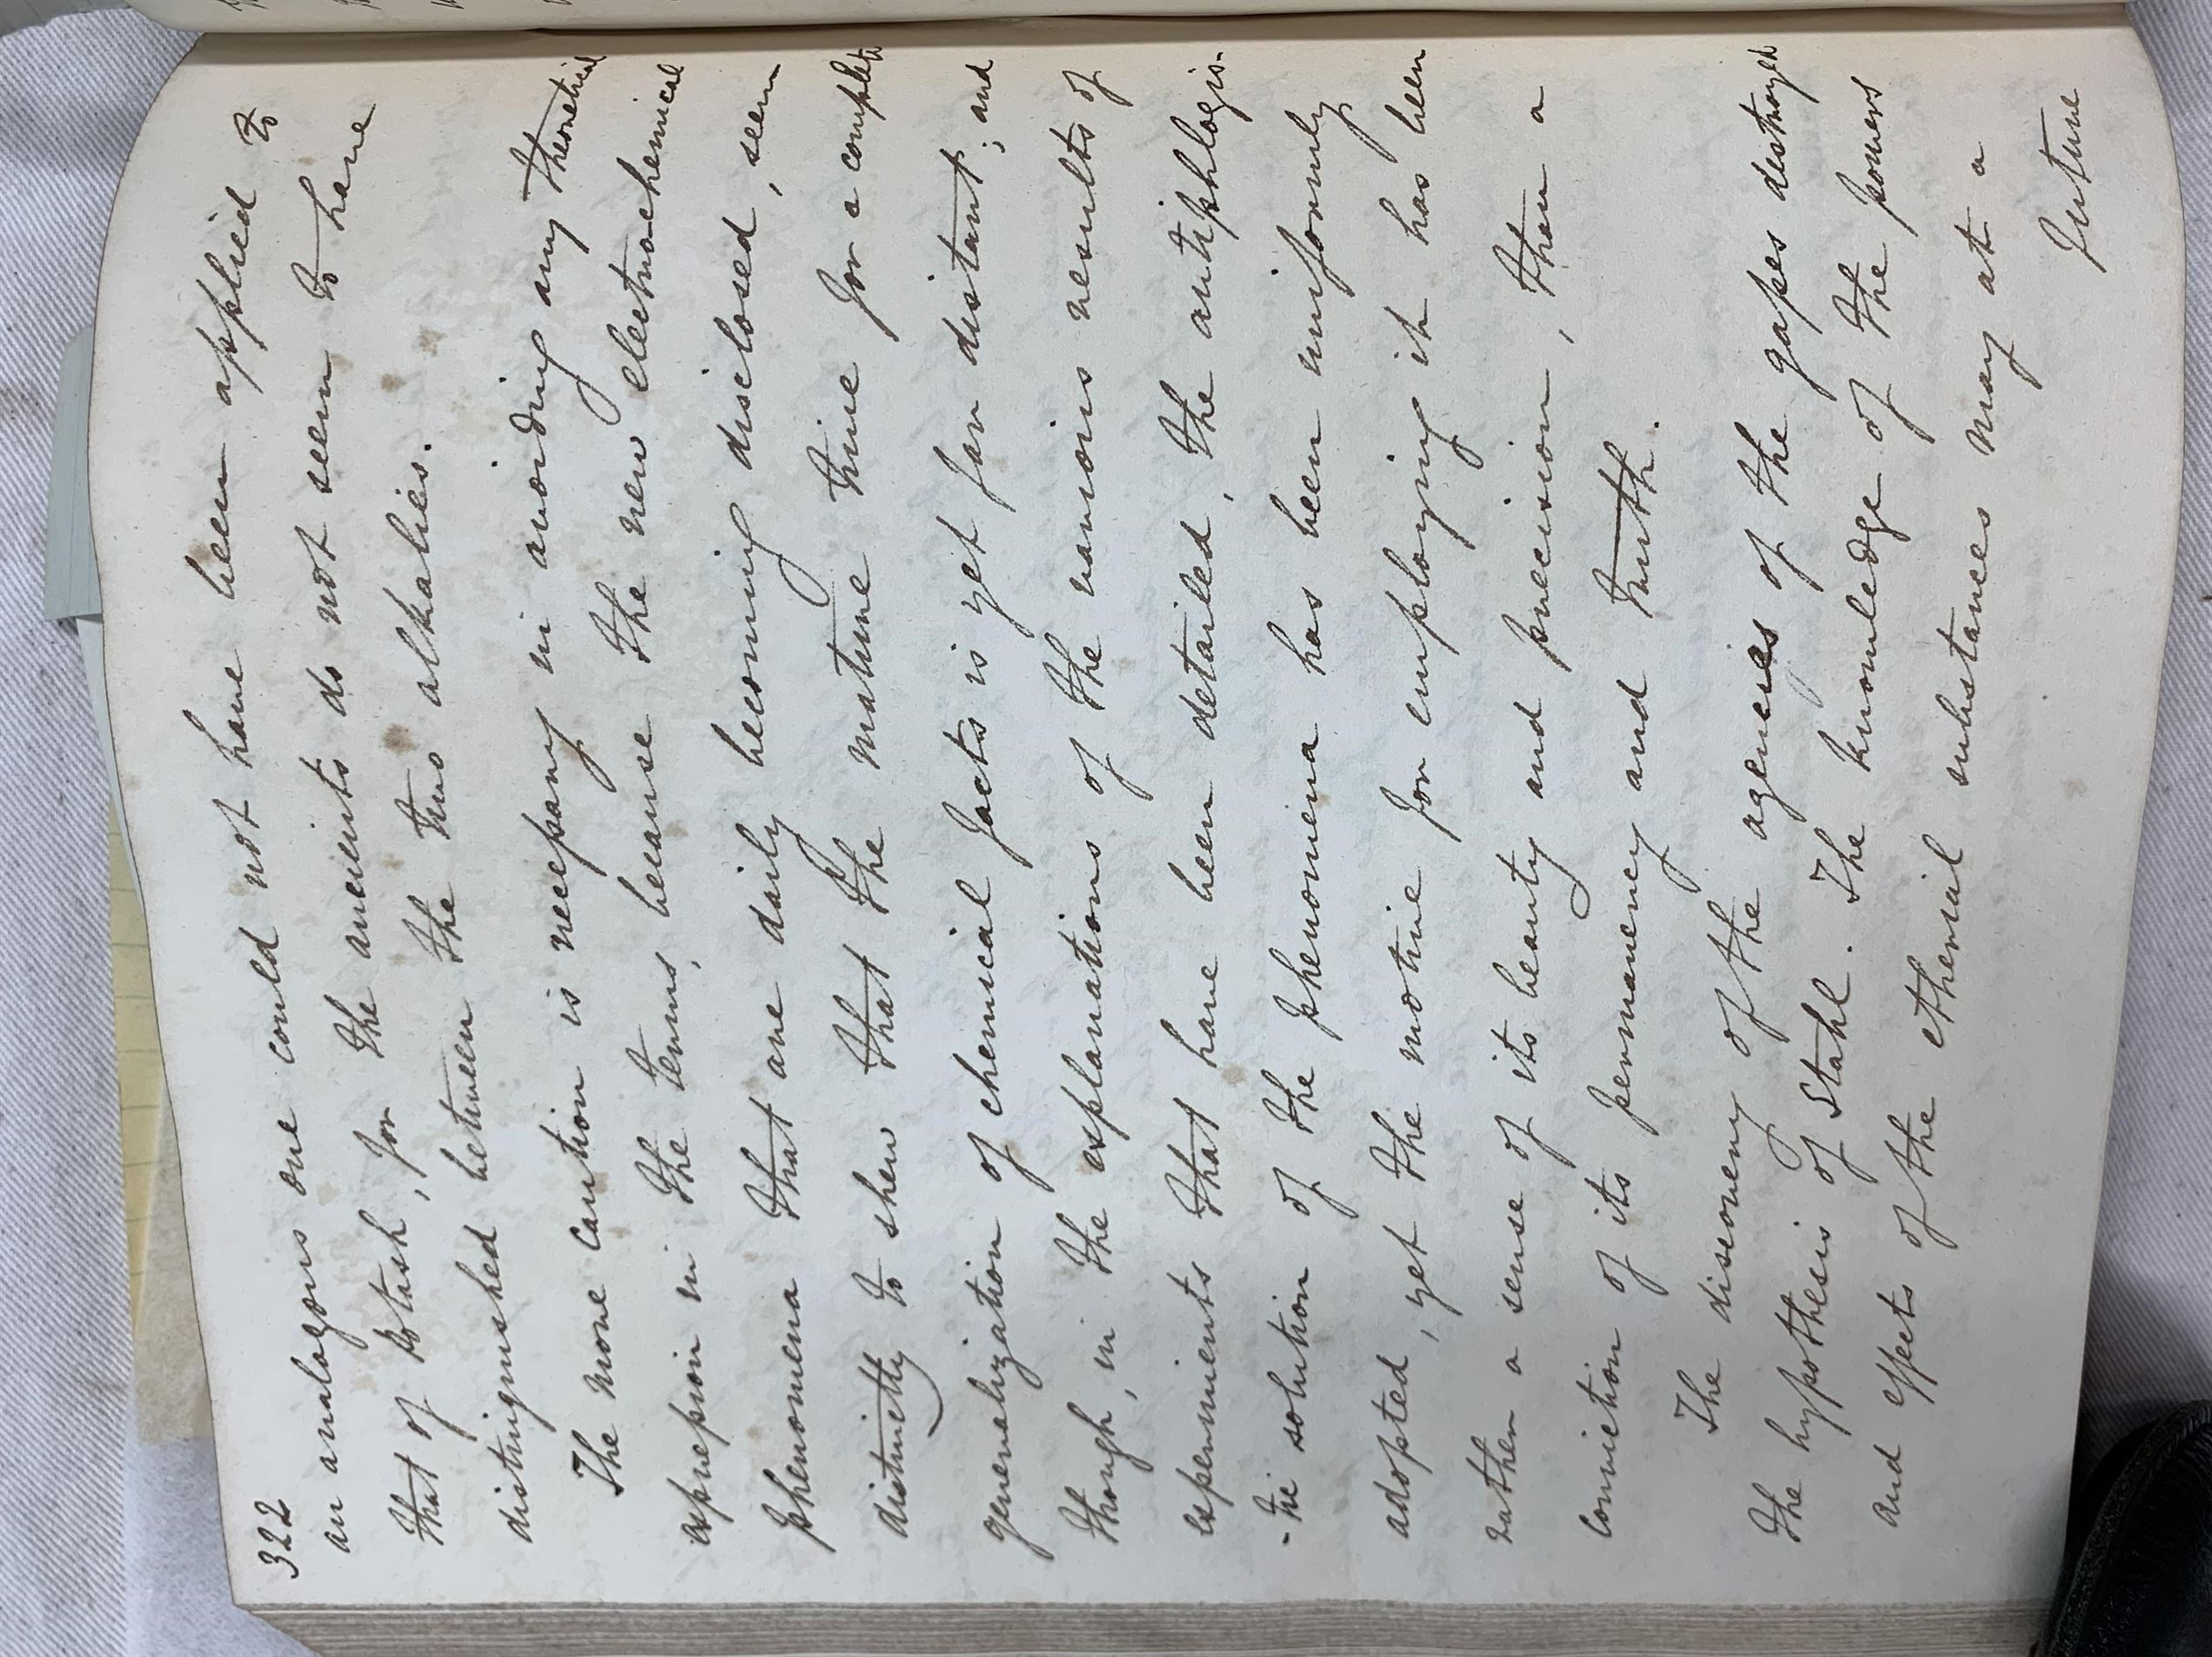 322
an analogous one could not have been applied to
that of potash, for the ancients do not seem to have
distinguished between the two alkalies.
The more caution is necessary in avoiding any theoretical
expression in the terms, because the new electrochemical
phenomena that are daily becoming disclosed, seem
distinctly to shew that the mature time for a complete
generalization of chemical facts is yet far distant; and
though, in the explanations of the various results of
experiments that have been detailed, the antiphlogis-
-tic solution of the phenomena has been uniformly
adopted, yet the motive for employing it has been
rather a sense of its beauty and precision, than a
conviction of its permanency and truth.
The discovery of the agencies of the gases destroyed
the hypothesis of Stahl. The knowledge of the powers
and effects of the etherial substances may at a
future